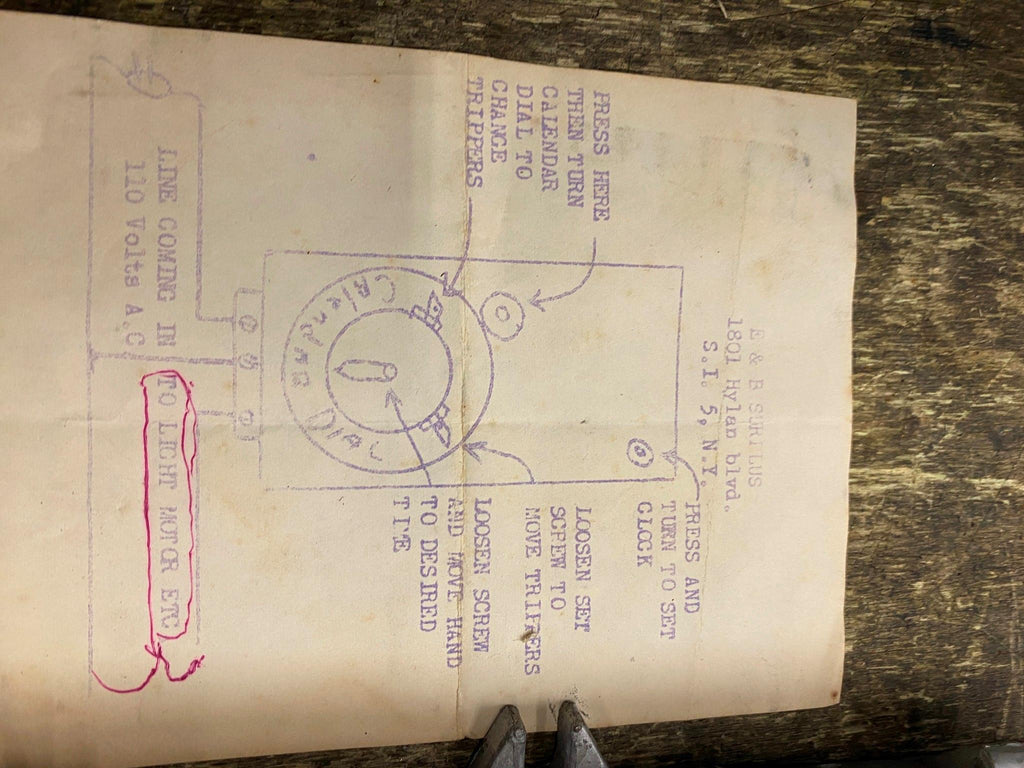 E & B SURPLUS
1801 Hylan blvd.
S.I. 5, N.Y.
PRESS HERE
THEN TURN
CALENDAR
DIAL TO
CHANGE
TRIPPERS
PRESS AND
TURN TO SET
CLOCK
LOOSEN SET
SCREW TO
MOVE TRIPPERS
LOOSEN SCREW
AND MOVE HAND
TO DESIRED
TIME
Calendar Dial
LINE COMING IN
110 Volts A.C
TO LIGHT MOTOR ETC